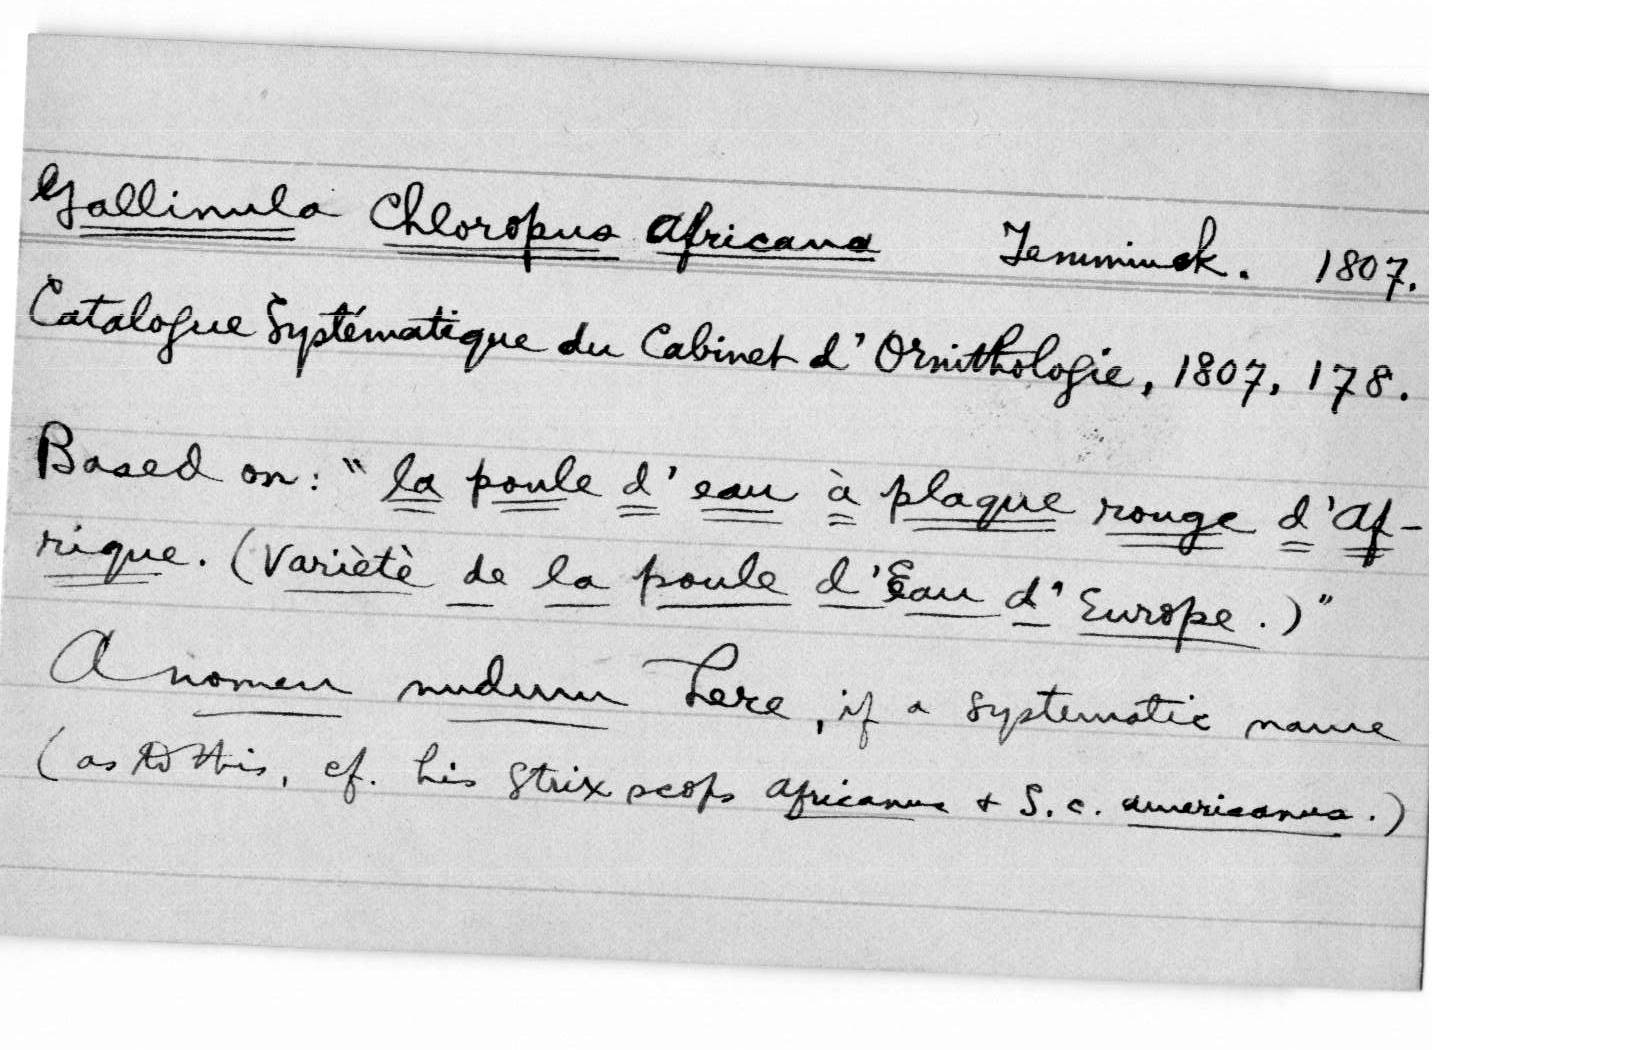 Gallinula Chloropus africana Temminck. 1807.
Catalogue Systématique du Cabinet d'Ornithologie, 1807, 178.
Based on: "la poule d'eau à plaque rouge d'Af-
rique. (Variètè de la poule d'Eau d'Europe.)"
A nomen nudum here, if a systematic name
(as to this, cf. his Strix scops africanus & S. c. americanus.)